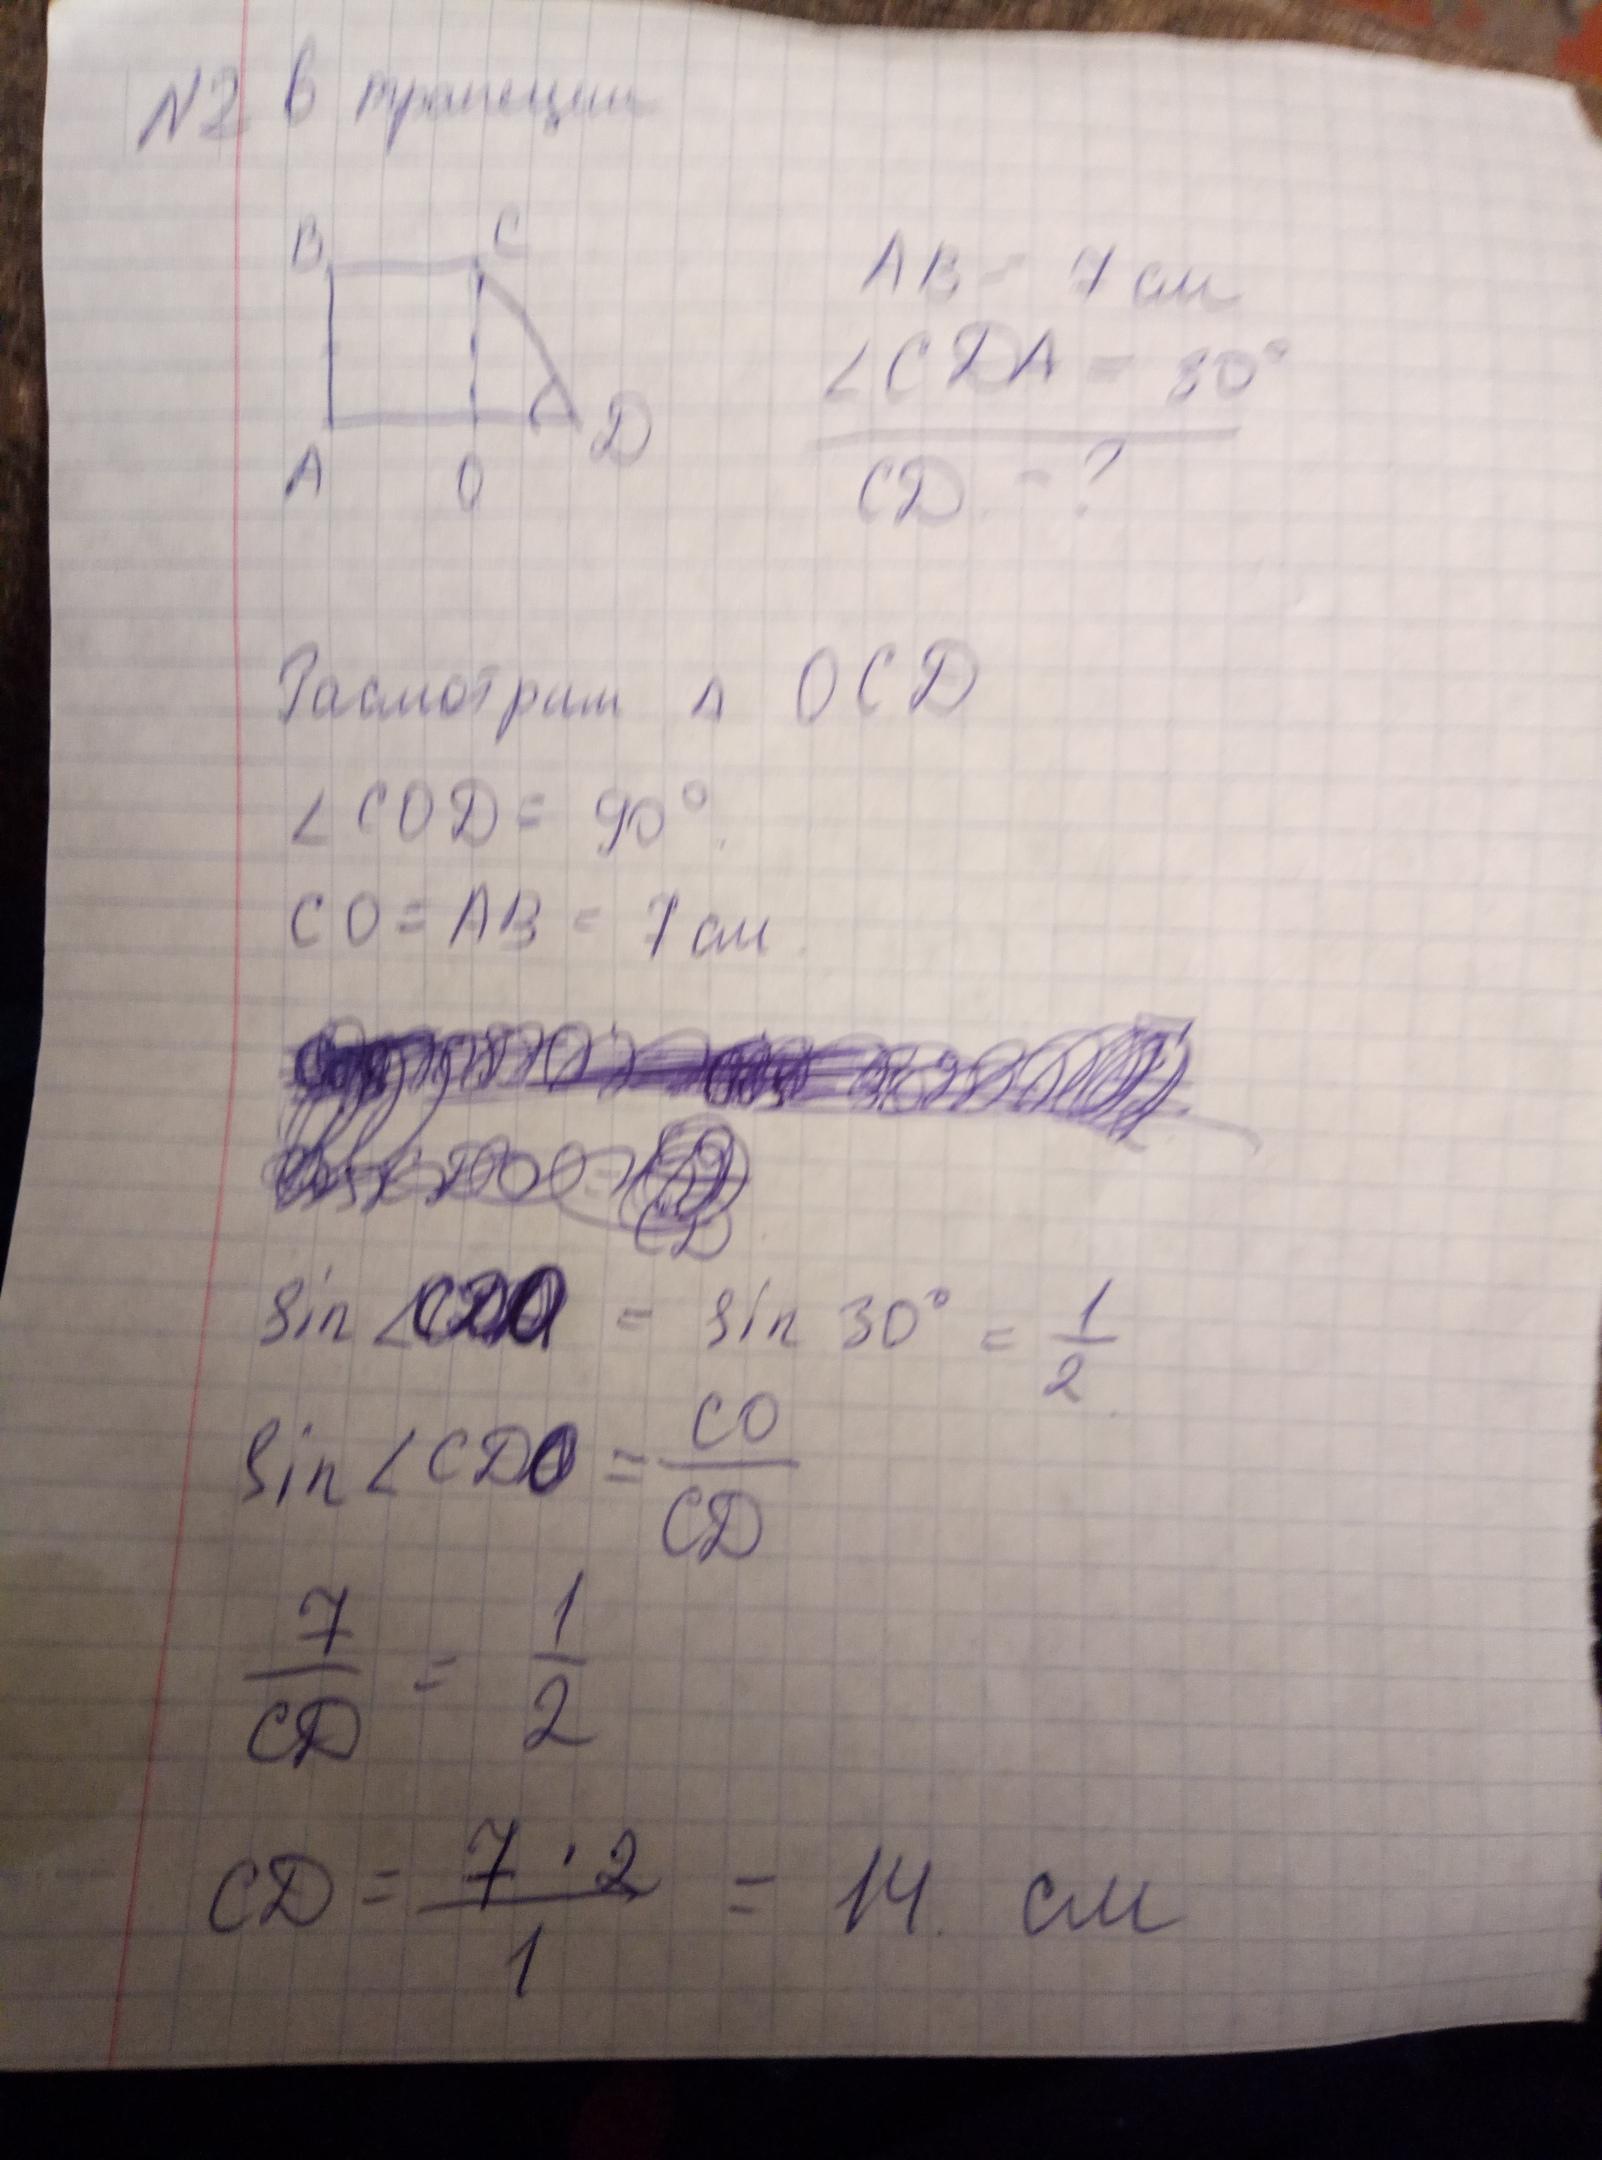 N2 в трапеции
B C
A O D
AB = 7 см
∠CDA = 30°
CD - ?
Расмотрим Δ OCD
∠COD = 90°.
CO = AB = 7 см.
CD
sin ∠CDO = sin 30° = 1/2
sin ∠CDO = CO/CD
7/CD = 1/2
CD = 7·2/1 = 14. см